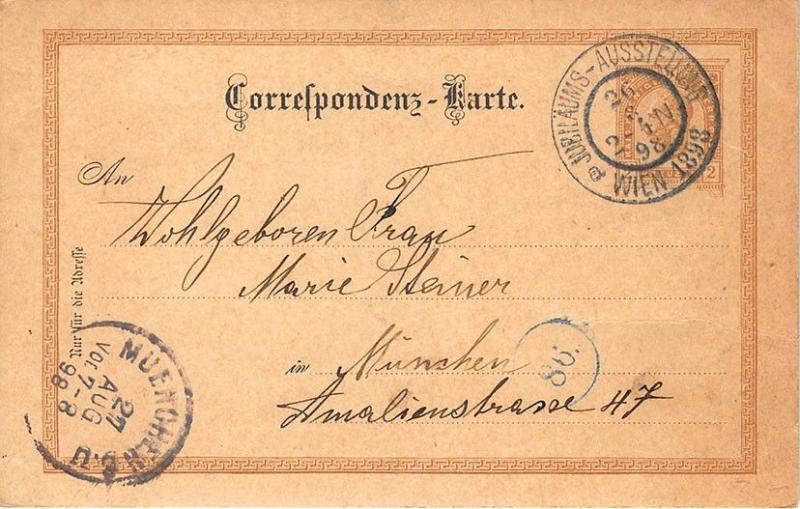 Correspondenz-Karte.
JUBILÄUMS-AUSSTELLUNG
26
8
2 4N
98
WIEN 1898
2
An
Wohlgeboren Frau
Marie Steiner
in München
Amalienstrasse 47
Nur für die Adresse
MUENCHEN
27
AUG
Vor. 7-8
98